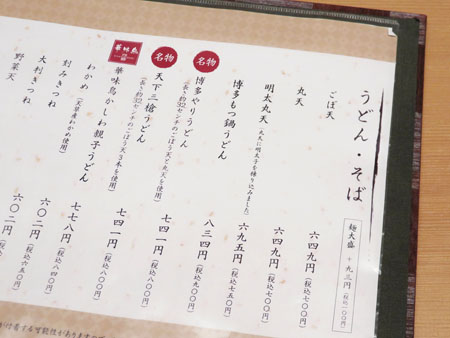 うどん・そば
麺大盛 +九三円(税込一〇〇円)
ごぼ天 六四九円(税込七〇〇円)
丸天 六四九円(税込七〇〇円)
明太丸天(丸天に明太子を練り込みました) 六九五円(税込七五〇円)
博多もつ鍋うどん 八三四円(税込九〇〇円)
名物 博多やりうどん(長さ約32センチのごぼう天を使用) 七四一円(税込八〇〇円)
名物 天下三槍うどん(長さ約32センチのごぼう天3本を使用) 七四一円(税込八〇〇円)
華味鳥 華味鳥かしわ親子うどん 七七八円(税込八四〇円)
わかめ(天草産わかめ使用) 六〇二円(税込六五〇円)
刻みきつね 六〇二円
大判きつね
野菜天